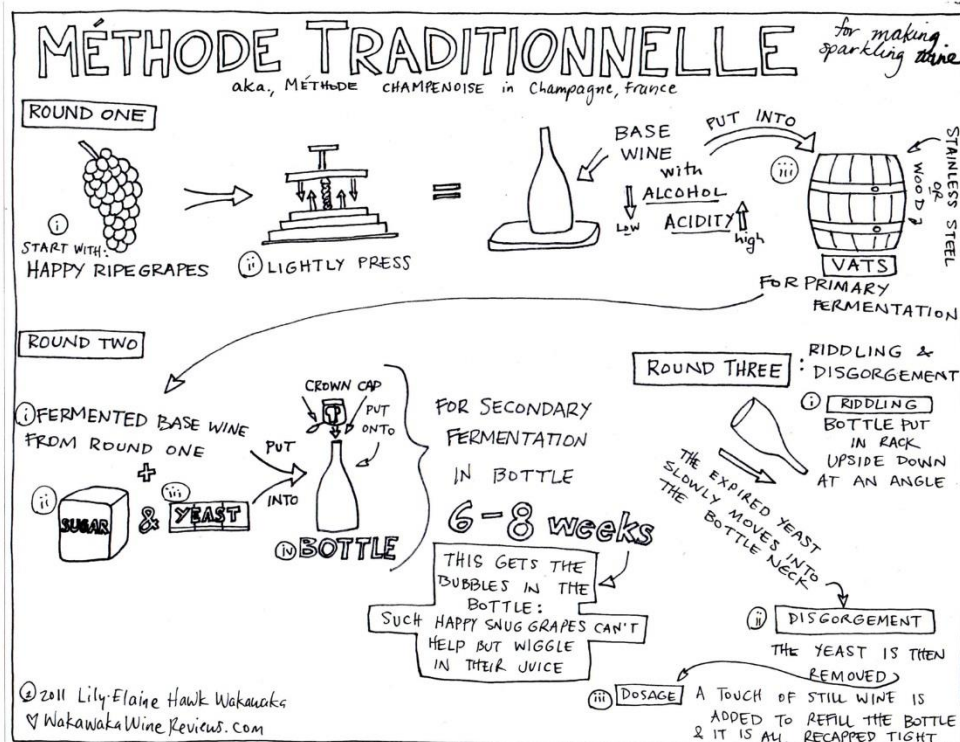 MÉTHODE TRADITIONNELLE
for making
sparkling wine
aka., MÉTHODE CHAMPENOISE in Champagne, France
ROUND ONE
i
START WITH:
HAPPY RIPE GRAPES
ii LIGHTLY PRESS
=
BASE
WINE
with
ALCOHOL
LOW
ACIDITY
high
PUT INTO
iii
STAINLESS STEEL
OR
WOOD
VATS
FOR PRIMARY
FERMENTATION
ROUND TWO
i FERMENTED BASE WINE
FROM ROUND ONE
+
ii SUGAR & iii YEAST
PUT
INTO
CROWN CAP
PUT
ONTO
iv BOTTLE
FOR SECONDARY
FERMENTATION
IN BOTTLE
6-8 weeks
THIS GETS THE
BUBBLES IN THE
BOTTLE:
SUCH HAPPY SNUG GRAPES CAN'T
HELP BUT WIGGLE
IN THEIR JUICE
ROUND THREE : RIDDLING &
DISGORGEMENT
i RIDDLING
BOTTLE PUT
IN RACK
UPSIDE DOWN
AT AN ANGLE
THE EXPIRED YEAST
SLOWLY MOVES INTO
THE BOTTLE NECK
ii DISGORGEMENT
THE YEAST IS THEN
REMOVED
iii DOSAGE A TOUCH OF STILL WINE IS
ADDED TO REFILL THE BOTTLE
& IT IS ALL RECAPPED TIGHT
© 2011 Lily-Elaine Hawk Wakawaka
WakawakaWineReviews.com